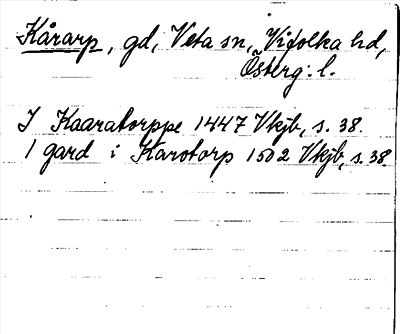 Kårarp, gd, Veta sn, Vifolka hd,
Österg:l.
I Kaaratorppe 1447 Vkjb, s. 38.
1 gard i Karotorp 1502 Vkjb, s. 38.